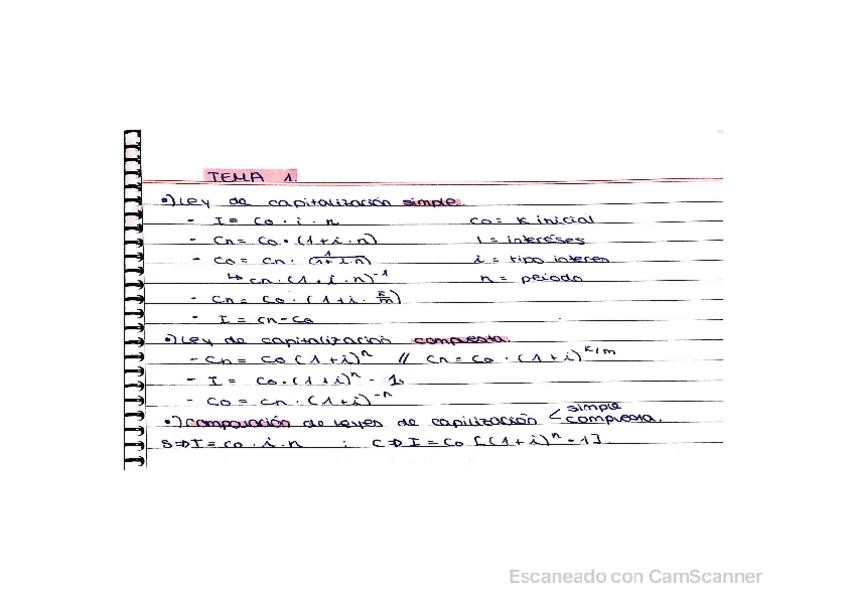 TEMA 1.
•) Ley de capitalización simple.
- I = Co · i · n
Co = K inicial
- Cn = Co · (1 + i · n)
I = interéses
- Co = Cn · (1/(1+i·n))
i = tipo interes
↳ Cn · (1 + i · n)^-1
n = periodo
- Cn = Co · (1 + i · k/m)
- I = Cn - Co
•) Ley de capitalización compuesta.
- Cn = Co (1 + i)^n // Cn = Co · (1 + i)^k/m
- I = Co · (1 + i)^n - 1.
- Co = Cn · (1 + i)^-n
•) Comparación de leyes de capilización < simple
compuesta.
S => I = Co · i · n ; C => I = Co [(1 + i)^n - 1]
Escaneado con CamScanner